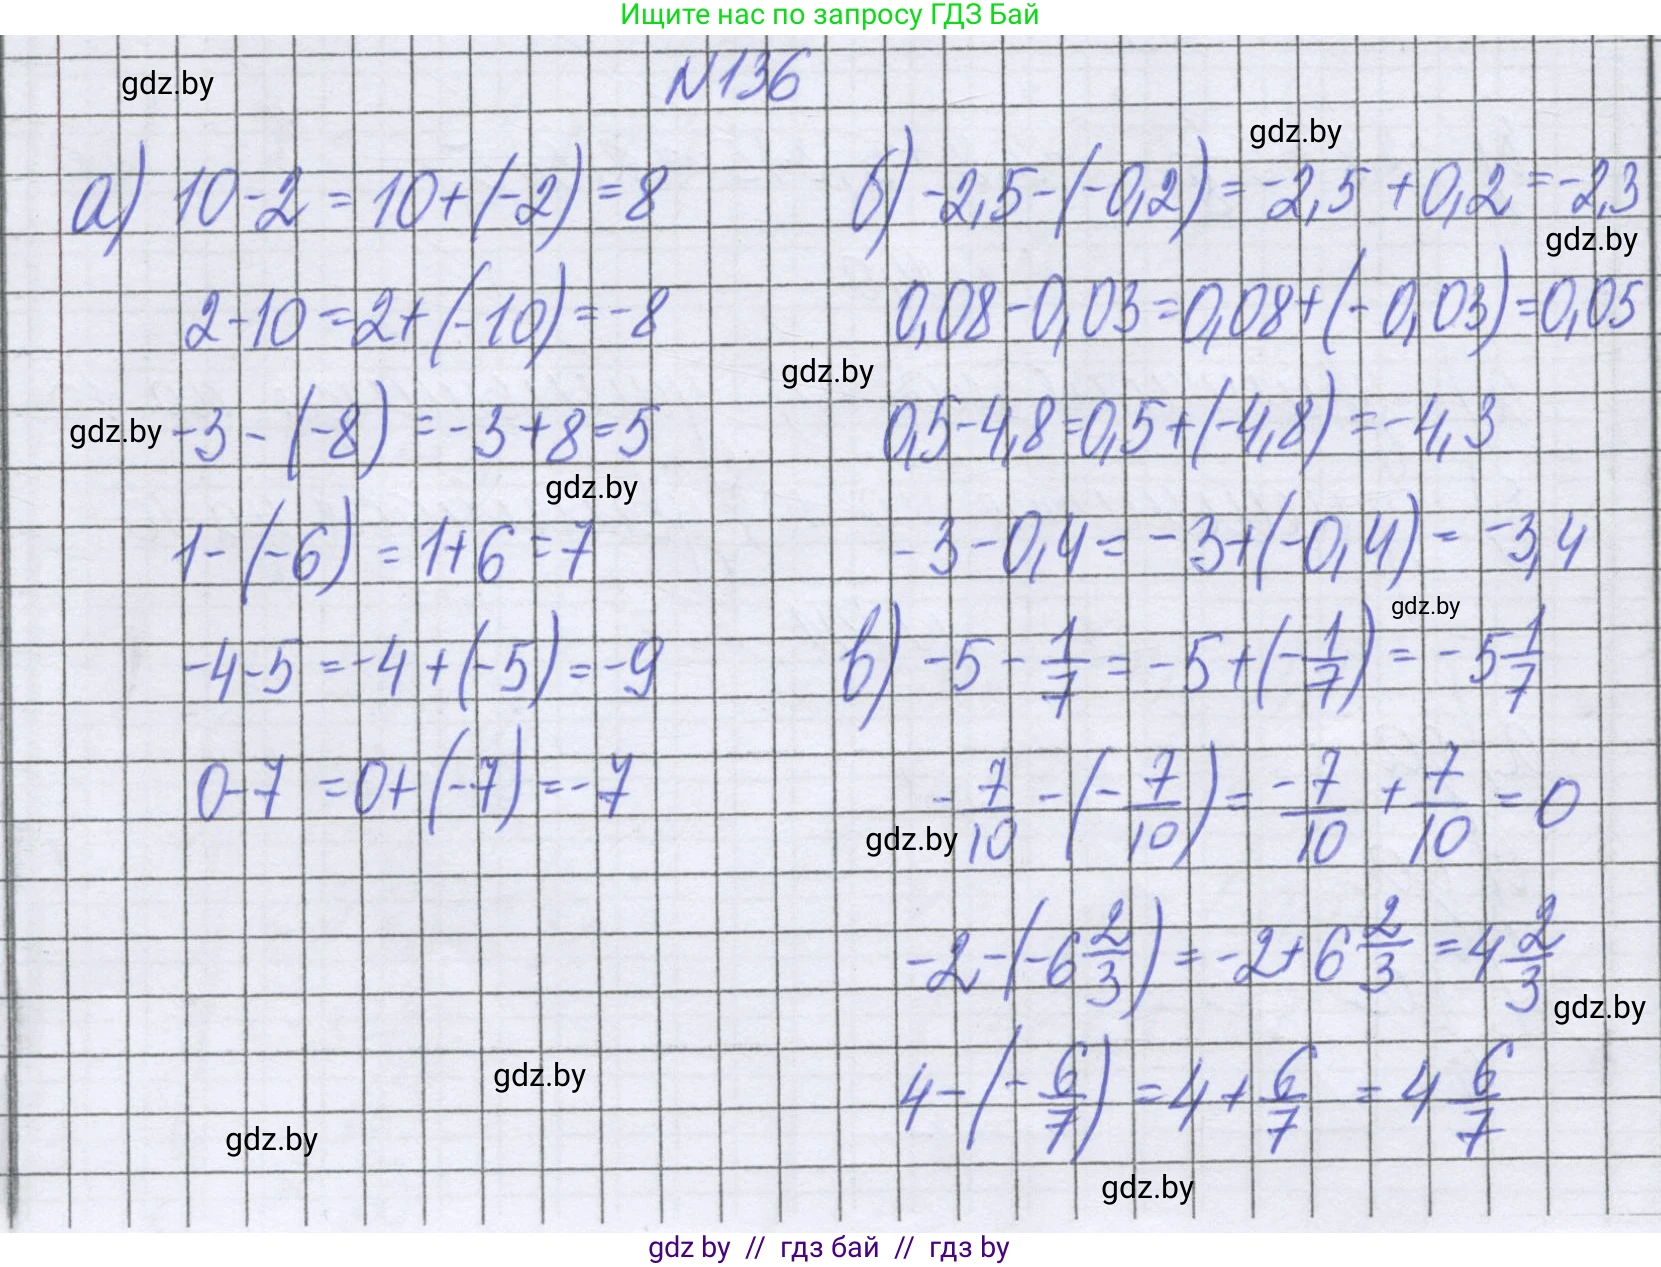 Ищите нас по запросу ГДЗ Бай
N136
gdz.by
gdz.by
а) 10-2 = 10+(-2) = 8
2-10 = 2+(-10) = -8
gdz.by
-3-(-8) = -3+8 = 5
gdz.by
1-(-6) = 1+6 = 7
-4-5 = -4+(-5) = -9
0-7 = 0+(-7) = -7
б) -2,5-(-0,2) = -2,5+0,2 = -2,3
gdz.by
0,08-0,03 = 0,08+(-0,03) = 0,05
gdz.by
0,5-4,8 = 0,5+(-4,8) = -4,3
-3-0,4 = -3+(-0,4) = -3,4
gdz.by
в) -5 - 1/7 = -5+(-1/7) = -5 1/7
-7/10 - (-7/10) = -7/10 + 7/10 = 0
gdz.by
-2-(-6 2/3) = -2+6 2/3 = 4 2/3
gdz.by
4-(-6/7) = 4+6/7 = 4 6/7
gdz.by
gdz.by
gdz.by
gdz by // гдз бай // гдз by